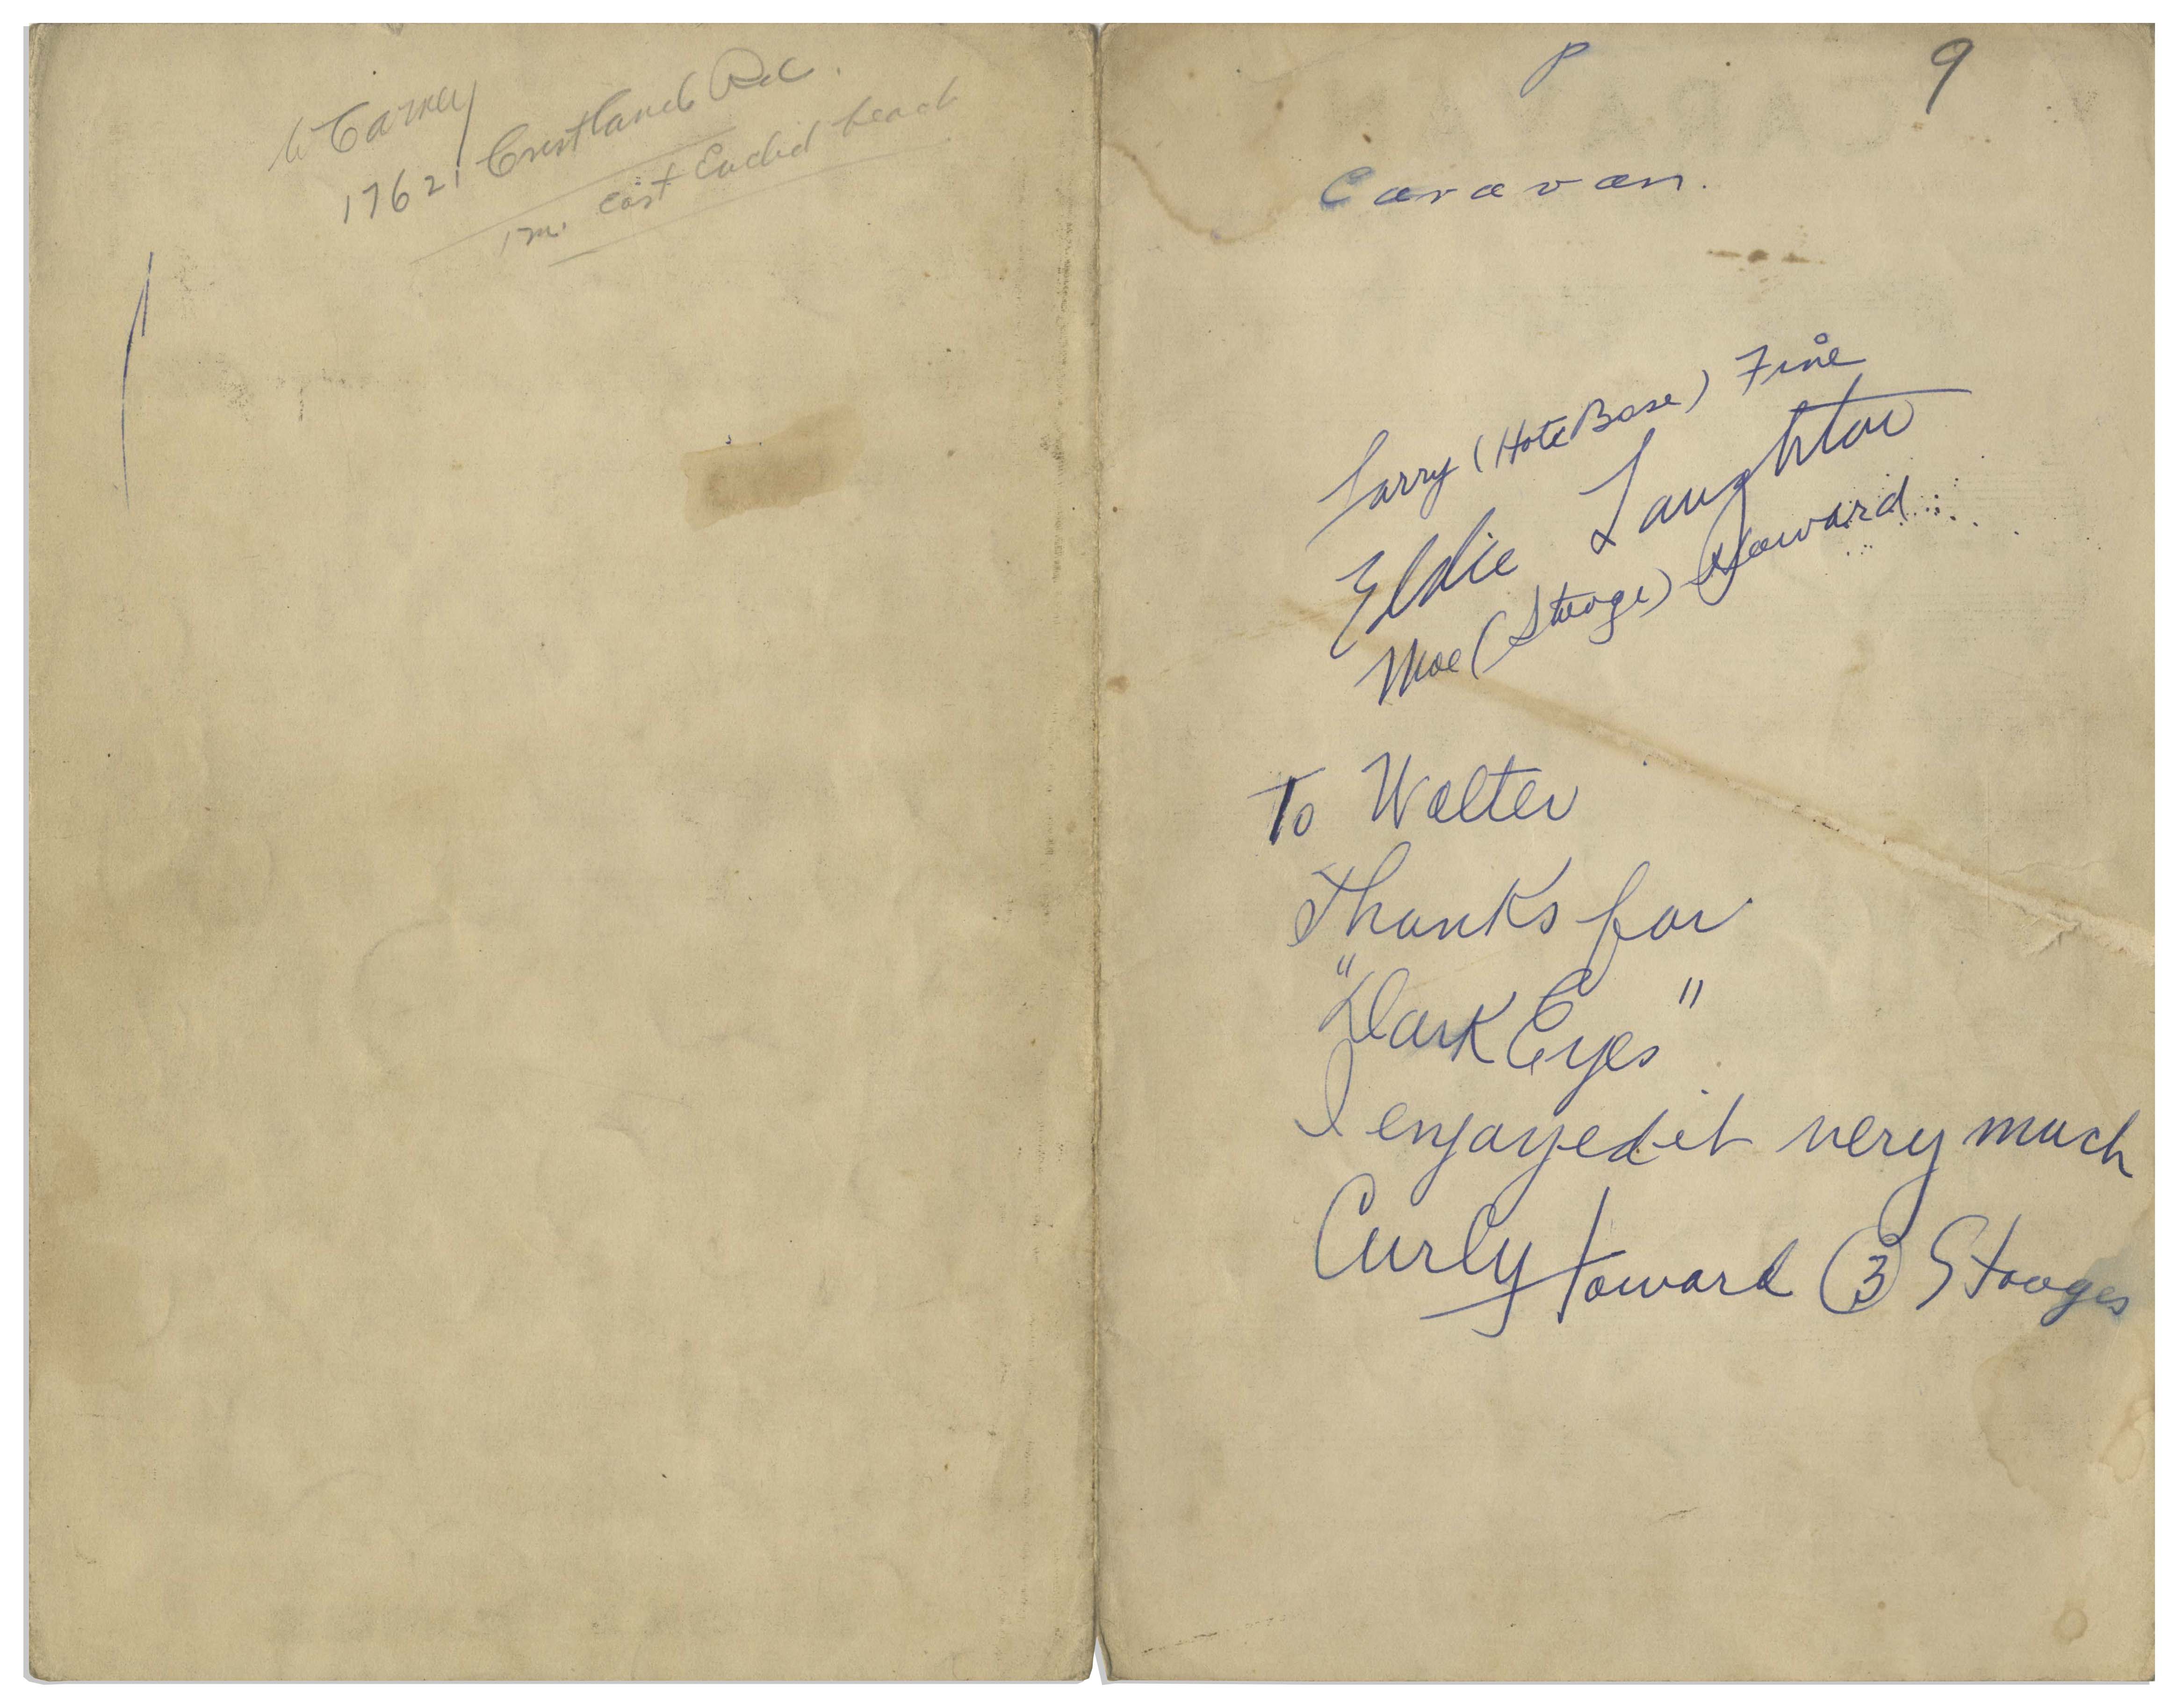 W Carney
17621 Crestland Rd.
1 m. East Euclid beach
P
9
Caravan.
Larry ( Fine
Eddie Laughton
Moe (Stooge) Howard
To Walter
Thanks for
"Dark Eyes"
I enjoyed it very much
Curly Howard 3 Stooges